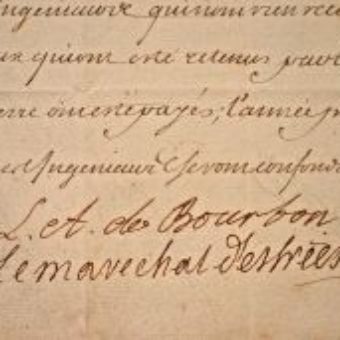 Ingenieurs qui n'ont rien rece
qui ont esté retenus pour
esté payés, l'année p
Ingenieurs seront confond
L. A. de Bourbon
Le marechal Destrées